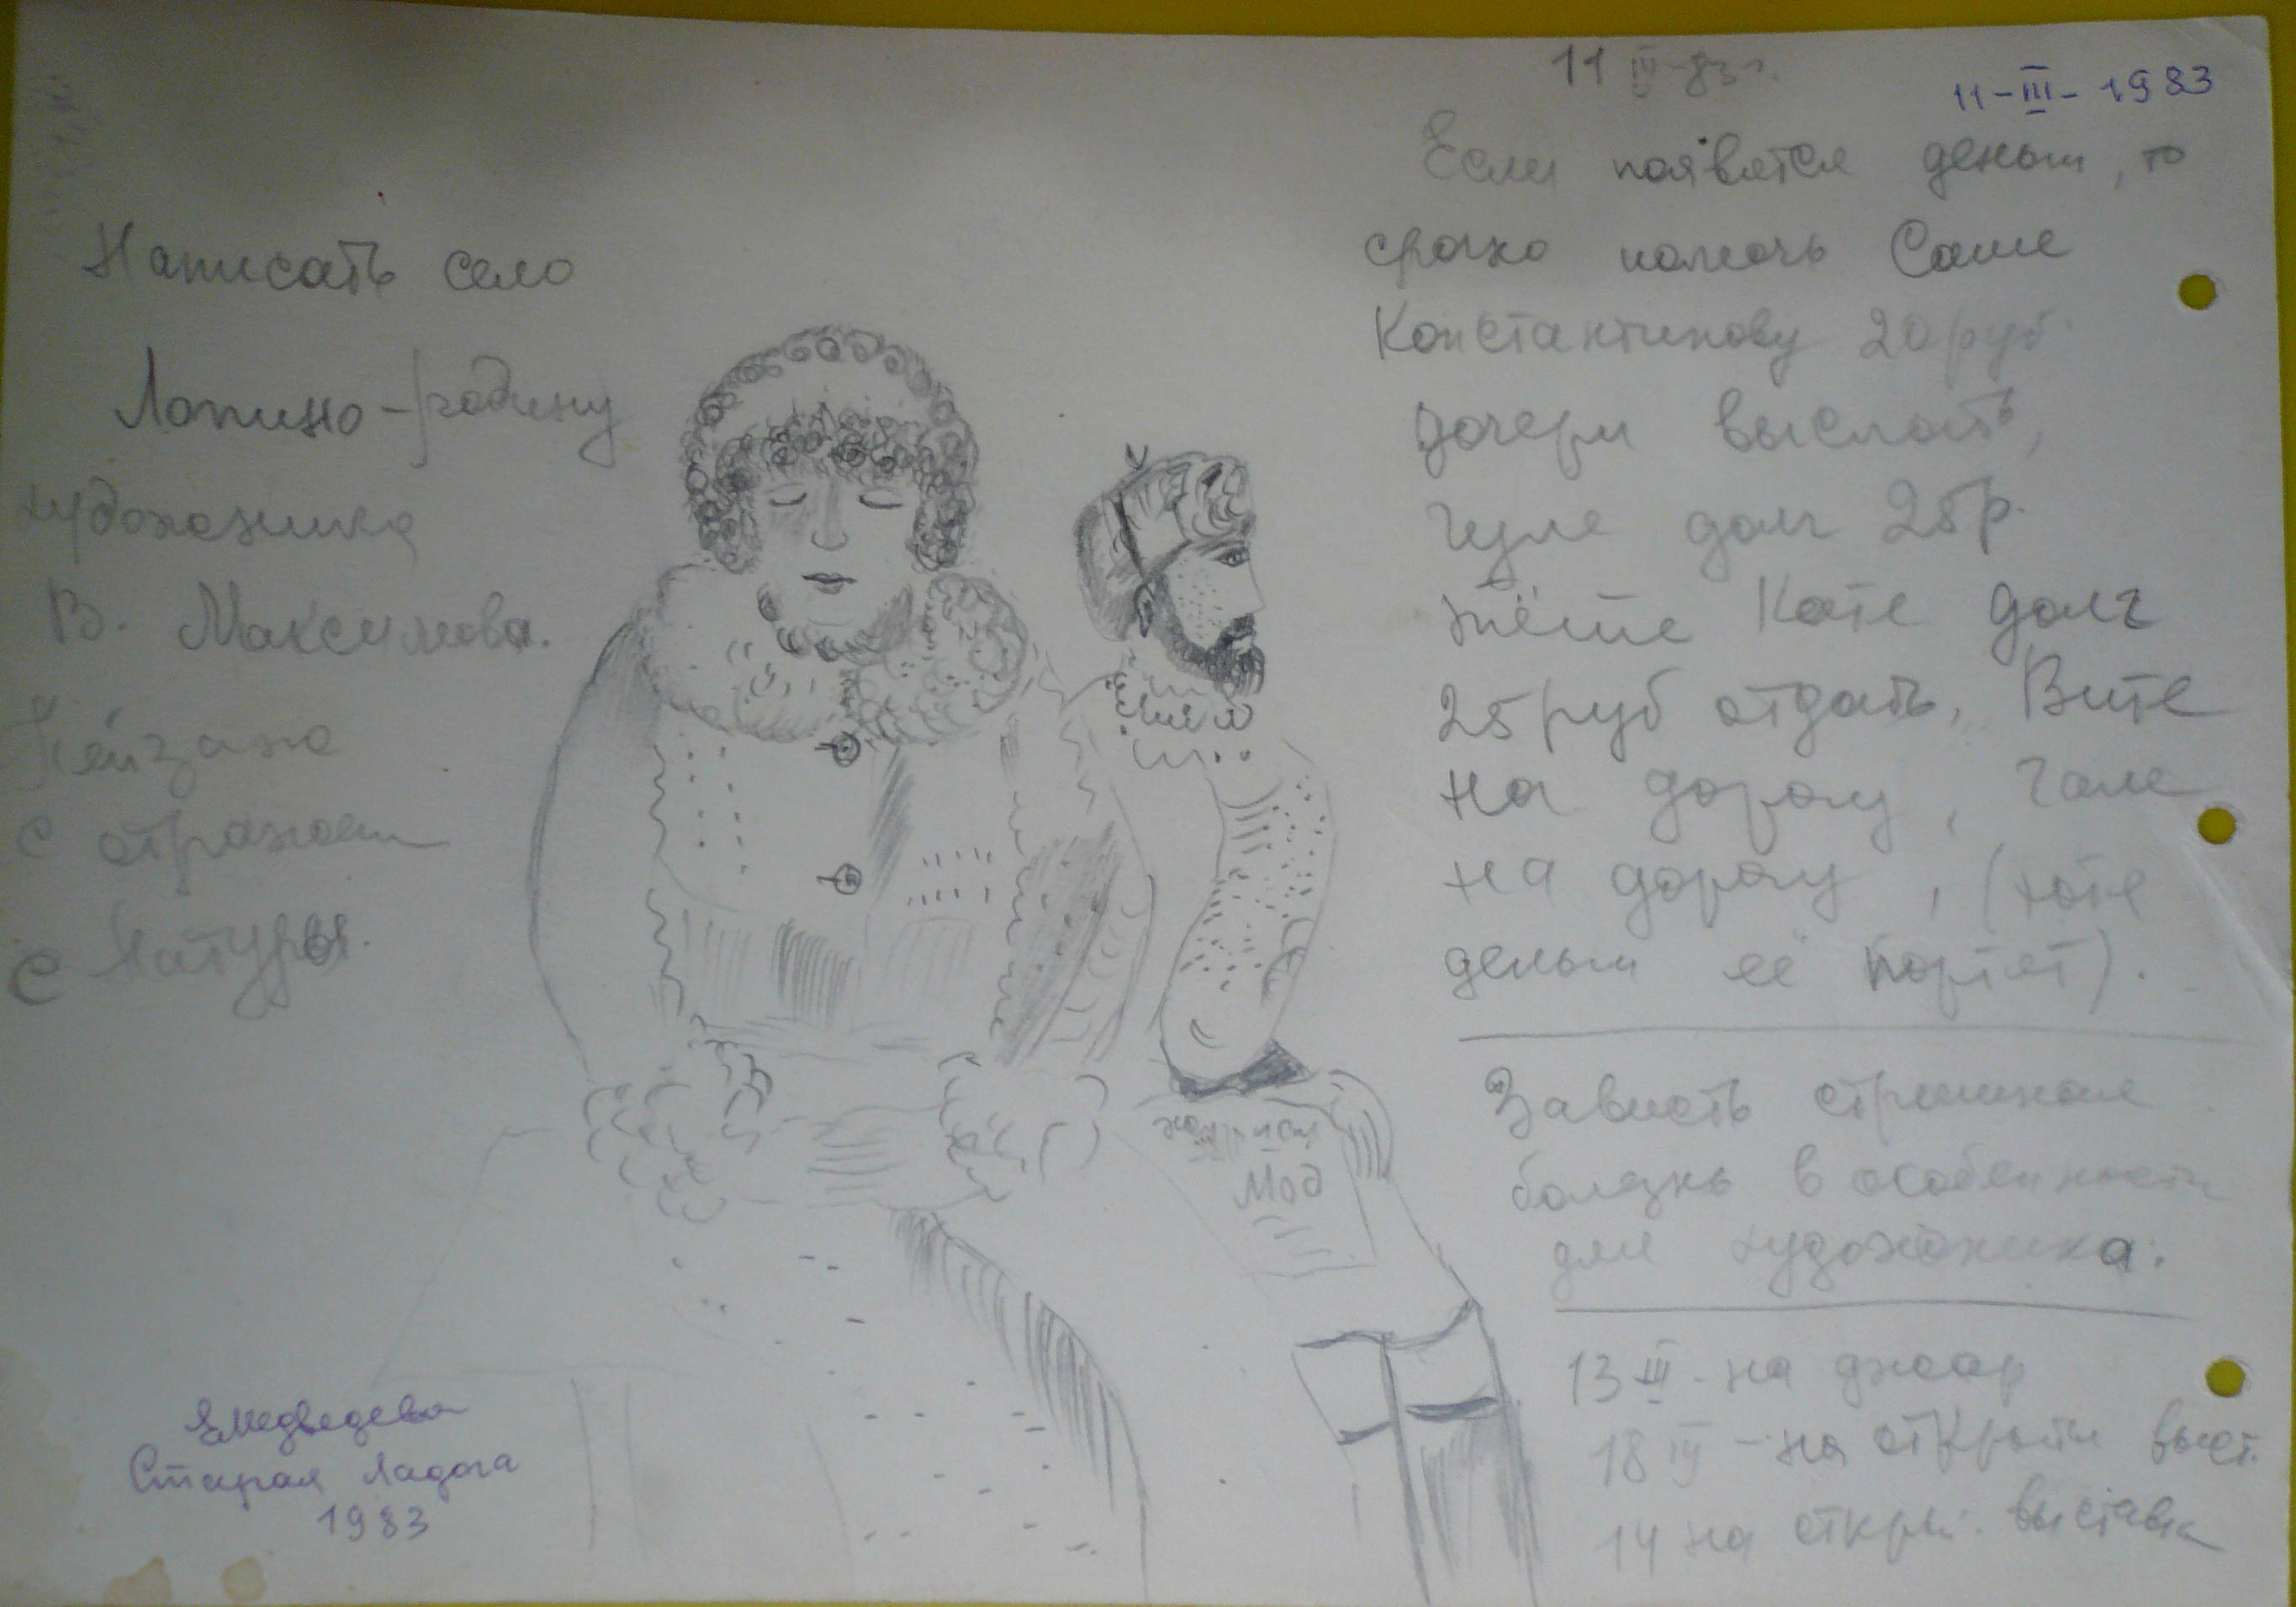 Написать село
Лопино - родину
художника
В. Максимова.
Пейзаж
с отражен
с натуры.
ЕМедведева
Старая Ладога
1983
11 III-83 г.
11-III-1983
Если появятся деньги, то
срочно помочь Саше
Константинову 20 руб
дочери выслать,
Гуле долг 25 р.
тёте Кате долг
25 руб отдать, Вите
на дорогу, Гале
на дорогу, (хотя
деньги её портят).
Зависть страшная
болезнь в особенности
для художника.
13 III - на джаз
18 III - на открыти выст.
14 на откры. выставк
Мод